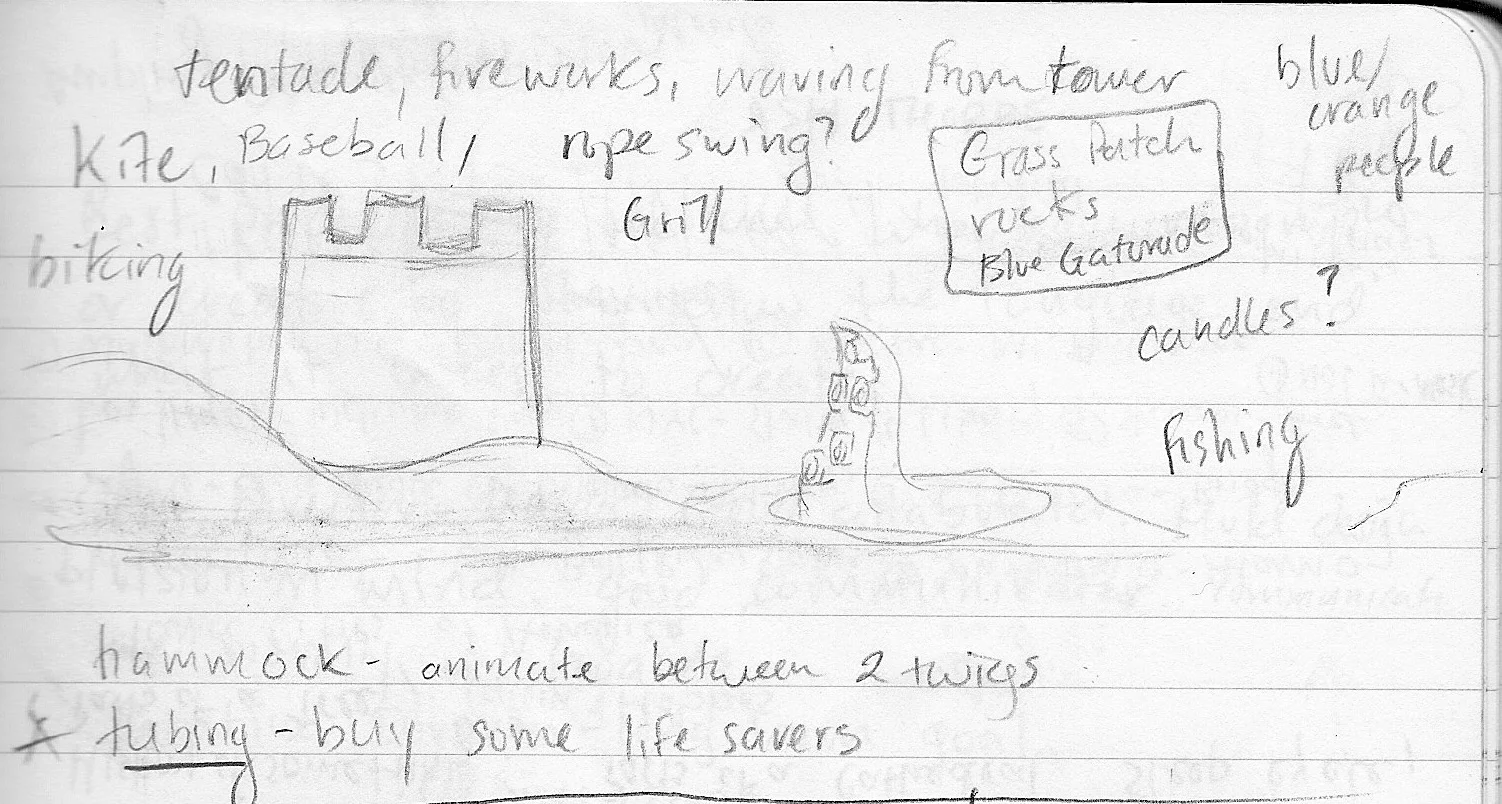 tentacle, fireworks, waving from tower
blue/
orange
people
Kite, Baseball, rope swing?
Grass Patch
rocks
Blue Gatorade
Grill
biking
candles?
fishing
hammock - animate between 2 twigs
tubing - buy some life savers